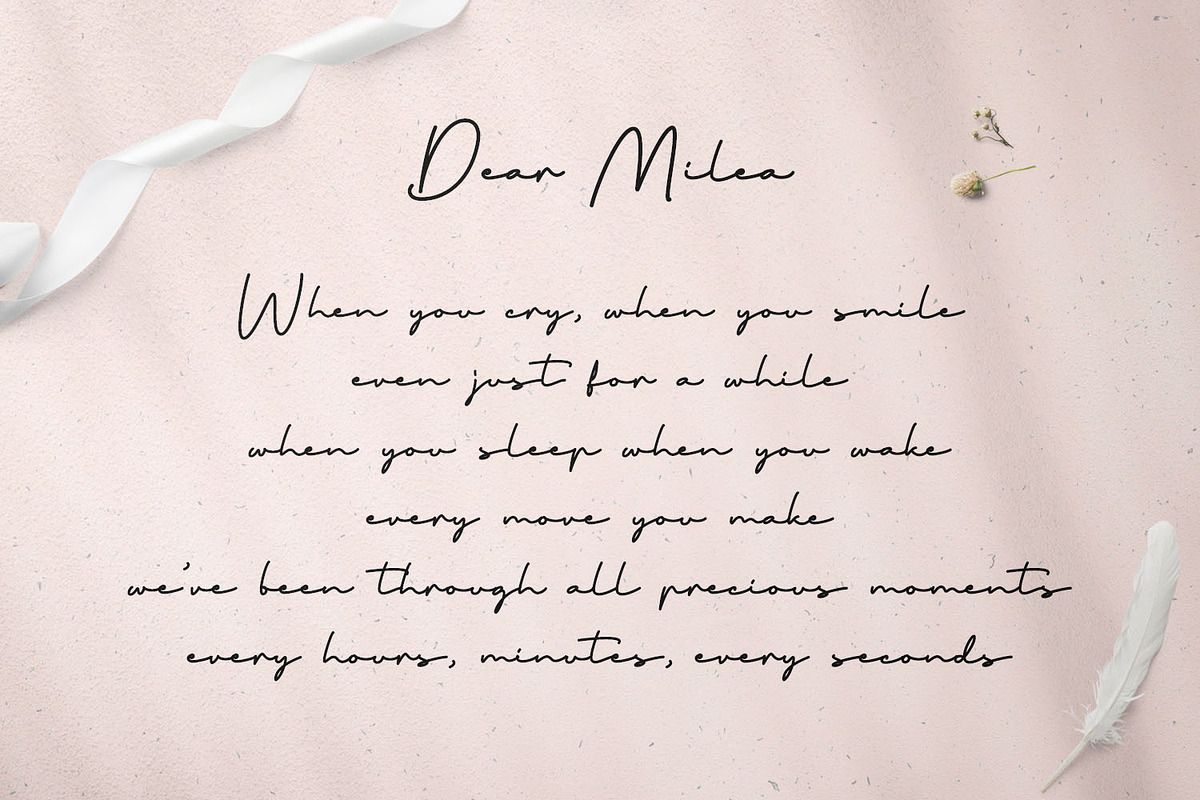 Dear Milea
When you cry, when you smile
even just for a while
when you sleep when you wake
every move you make
we've been through all precious moments
every hours, minutes, every seconds